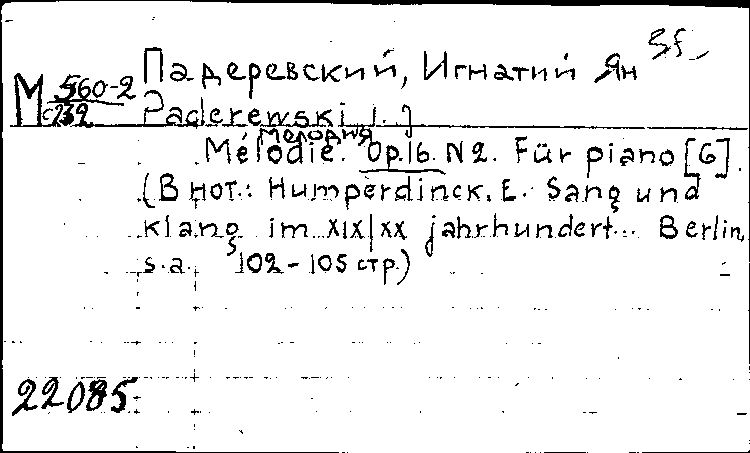 Падеревский, Игнатий Ян
М 560-2
с232
Paderewski I. J
мелодия
Mélodie. Op.16. N2. Für piano [G].
(В нот.: Humperdinck. E. Sang und
klang im XIX/XX jahrhundert... Berlin,
s.a. 102-105 стр.)
22085